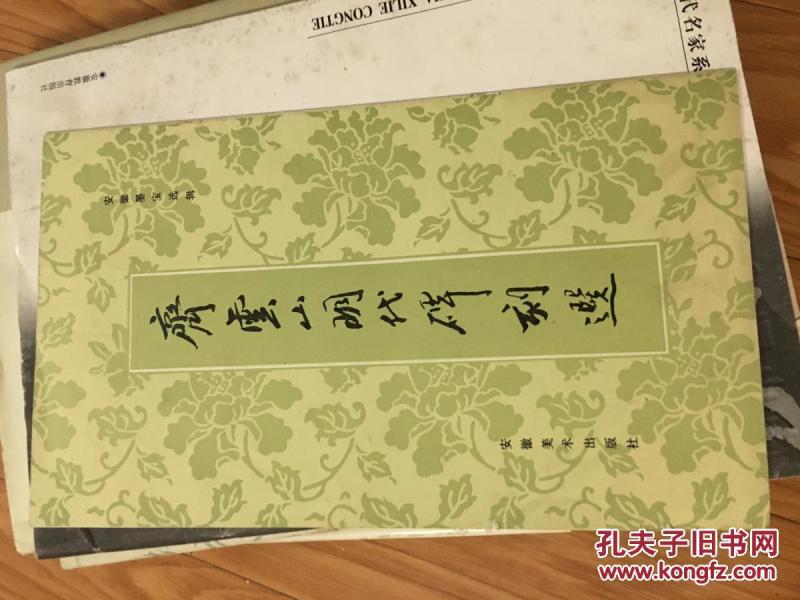 安徽墨宝选辑
齊雲山明代碑刻選
安徽美术出版社
XILIE CONGTIE
代名家系
安徽教育出版社
孔夫子旧书网
www.kongfz.com